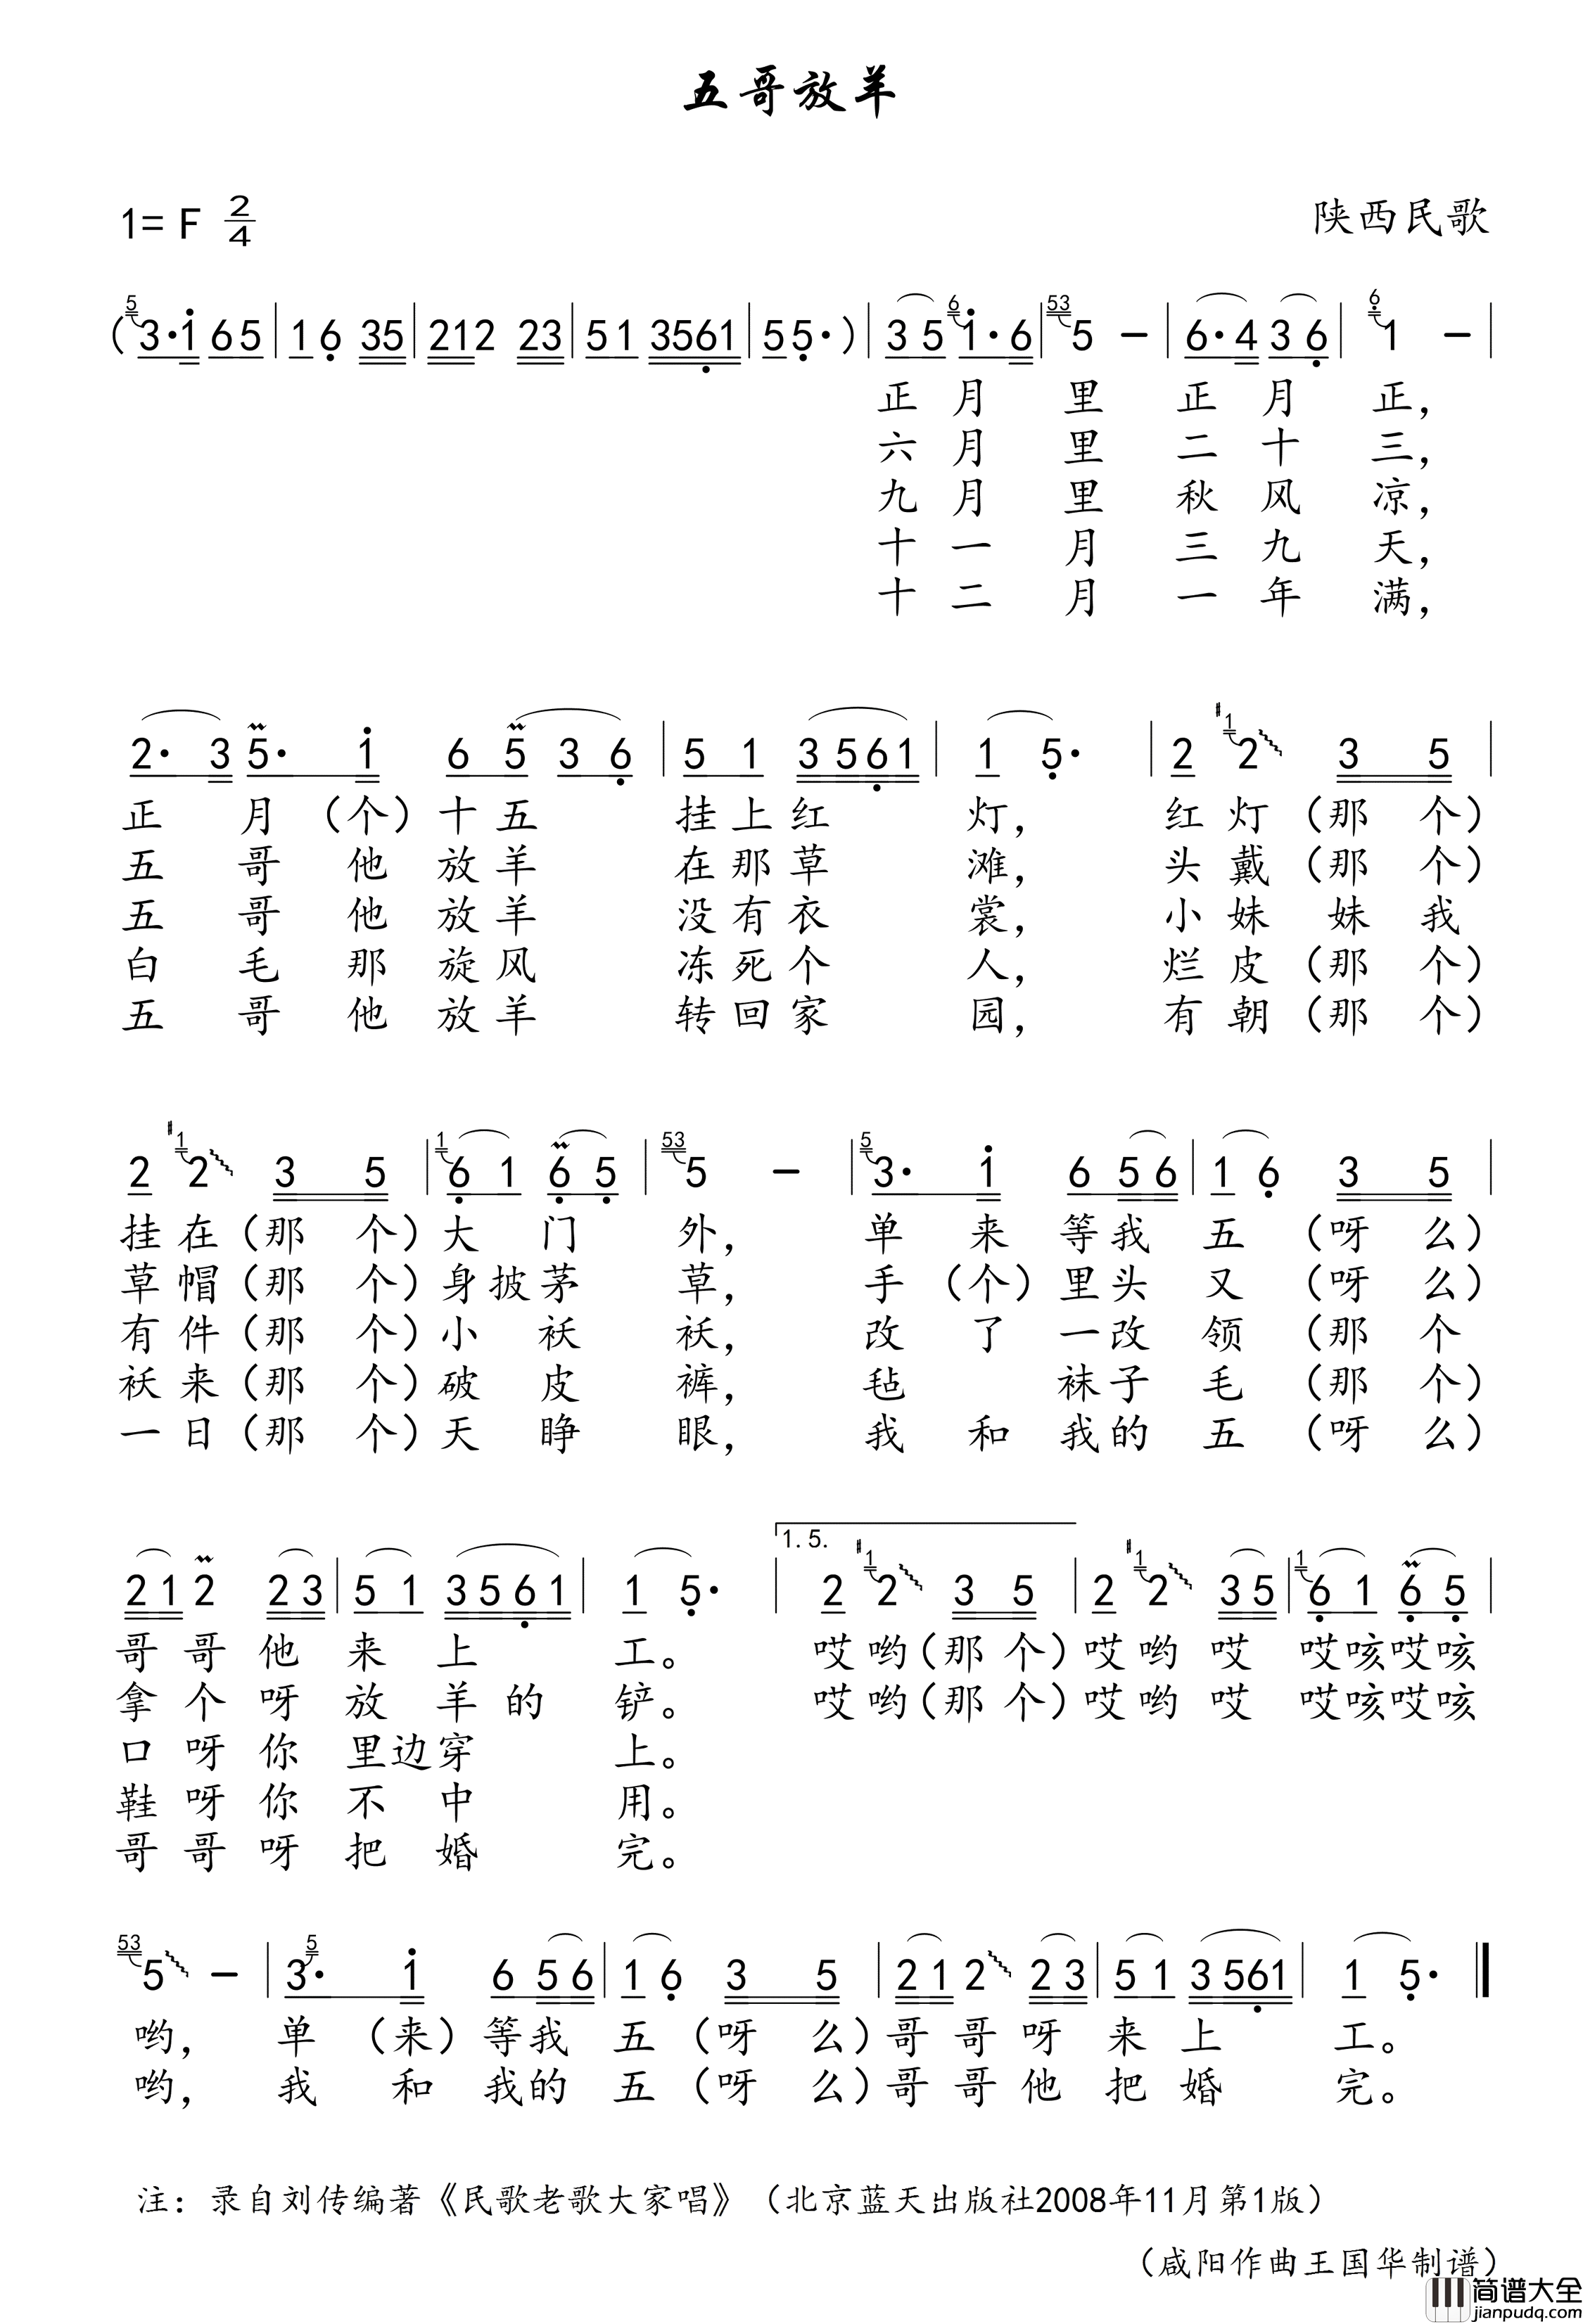 五哥放羊
1= F 2/4 陕西民歌
( 5 3·1 65 | 16 35 | 212 23 | 51 3561 | 55· ) | 35 6 1·6 | 53 5 － | 6·4 36 | 6 1 － |
正 月 里 正 月 正，
六 月 里 二 十 三，
九 月 里 秋 风 凉，
十 一 月 三 九 天，
十 二 月 一 年 满，
2· 3 5· 1 6 5 3 6 | 5 1 3561 | 1 5· | 2 #1 2 3 5 |
正 月 （个）十 五 挂 上 红 灯， 红 灯 （那 个）
五 哥 他 放 羊 在 那 草 滩， 头 戴 （那 个）
五 哥 他 放 羊 没 有 衣 裳， 小 妹 妹 我
白 毛 那 旋 风 冻 死 个 人， 烂 皮 （那 个）
五 哥 他 放 羊 转 回 家 园， 有 朝 （那 个）
2 #1 2 3 5 | 1 6 1 6 5 | 53 5 － | 5 3· 1 6 56 | 1 6 3 5 |
挂 在（那 个）大 门 外， 单 来 等 我 五 （呀 么）
草 帽（那 个）身 披 茅 草， 手 （个）里 头 又 （呀 么）
有 件（那 个）小 袄 袄， 改 了 一 改 领 （那 个
袄 来（那 个）破 皮 裤， 毡 袜 子 毛 （那 个）
一 日（那 个）天 睁 眼， 我 和 我 的 五 （呀 么）
21 2 23 | 5 1 3561 | 1 5· | 1.5. 2 #1 2 3 5 | 2 #1 2 35 | 1 6 1 6 5 |
哥 哥 他 来 上 工。 哎 哟（那 个）哎 哟 哎 哎咳哎咳
拿 个 呀 放 羊 的 铲。 哎 哟（那 个）哎 哟 哎 哎咳哎咳
口 呀 你 里 边 穿 上。
鞋 呀 你 不 中 用。
哥 哥 呀 把 婚 完。
53 5 － | 3· 5 1 6 56 | 1 6 3 5 | 21 2 23 | 51 3561 | 1 5· ‖
哟， 单 （来）等 我 五 （呀 么）哥 哥 呀 来 上 工。
哟， 我 和 我 的 五 （呀 么）哥 哥 他 把 婚 完。
注：录自刘传编著《民歌老歌大家唱》（北京蓝天出版社2008年11月第1版）
（咸阳作曲王国华制谱）
简谱大全
jianpudq.com